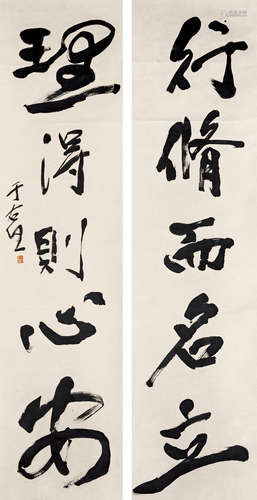 行脩而名立
理得則心安
于右任